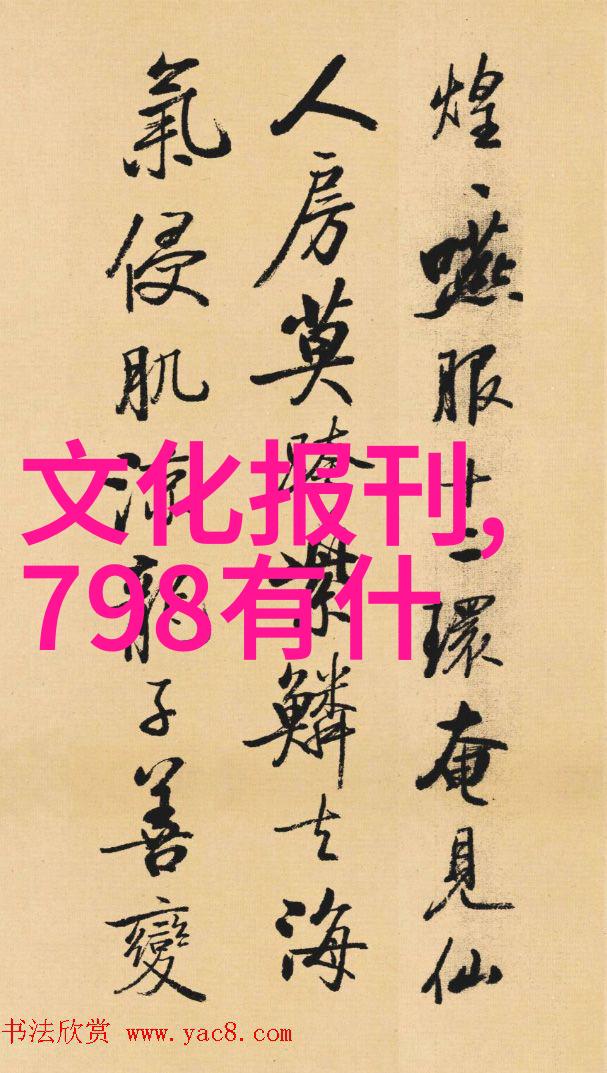 煌、嚥服十二環奄見仙
人房莫跨紫鱗去海
氣侵肌涼龍子善變
文化报刊,
798有什
书法欣赏 www.yac8.com